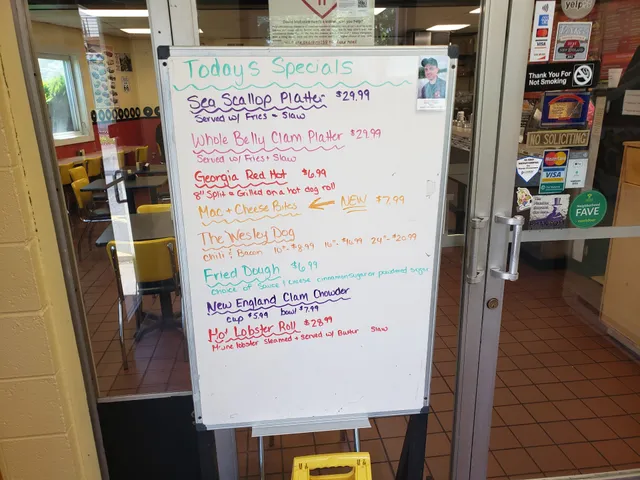 Today's Specials
Sea Scallop Platter $29.99
Served w/ Fries + Slaw
Whole Belly Clam Platter $29.99
Served w/ Fries + Slaw
Georgia Red Hot $6.99
8" Split + Grilled on a hot dog roll
Mac + Cheese Bites ← NEW $7.99
The Wesley Dog
Chili & Bacon 10"- $8.99 16"- $16.99 24"- $20.99
Fried Dough $6.99
Choice of sauce / cheese cinnamon sugar or powdered sugar
New England Clam Chowder
cup $5.99 bowl $7.99
Mo' Lobster Roll $28.99
Maine lobster steamed + served w/ Butter Slaw
yelp
VISA
Thank You For
Not Smoking
NO SOLICITING
MasterCard
VISA
FAVE